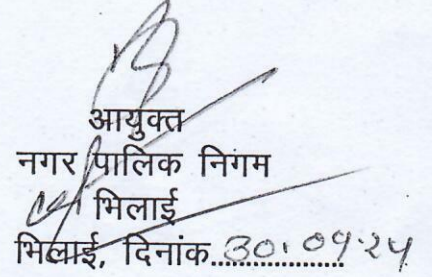 आयुक्त
नगर पालिक निगम
भिलाई
भिलाई, दिनांक..30.09.24